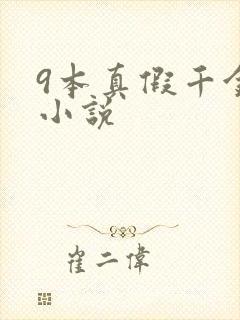 9本真假千金
小说
崔二偉